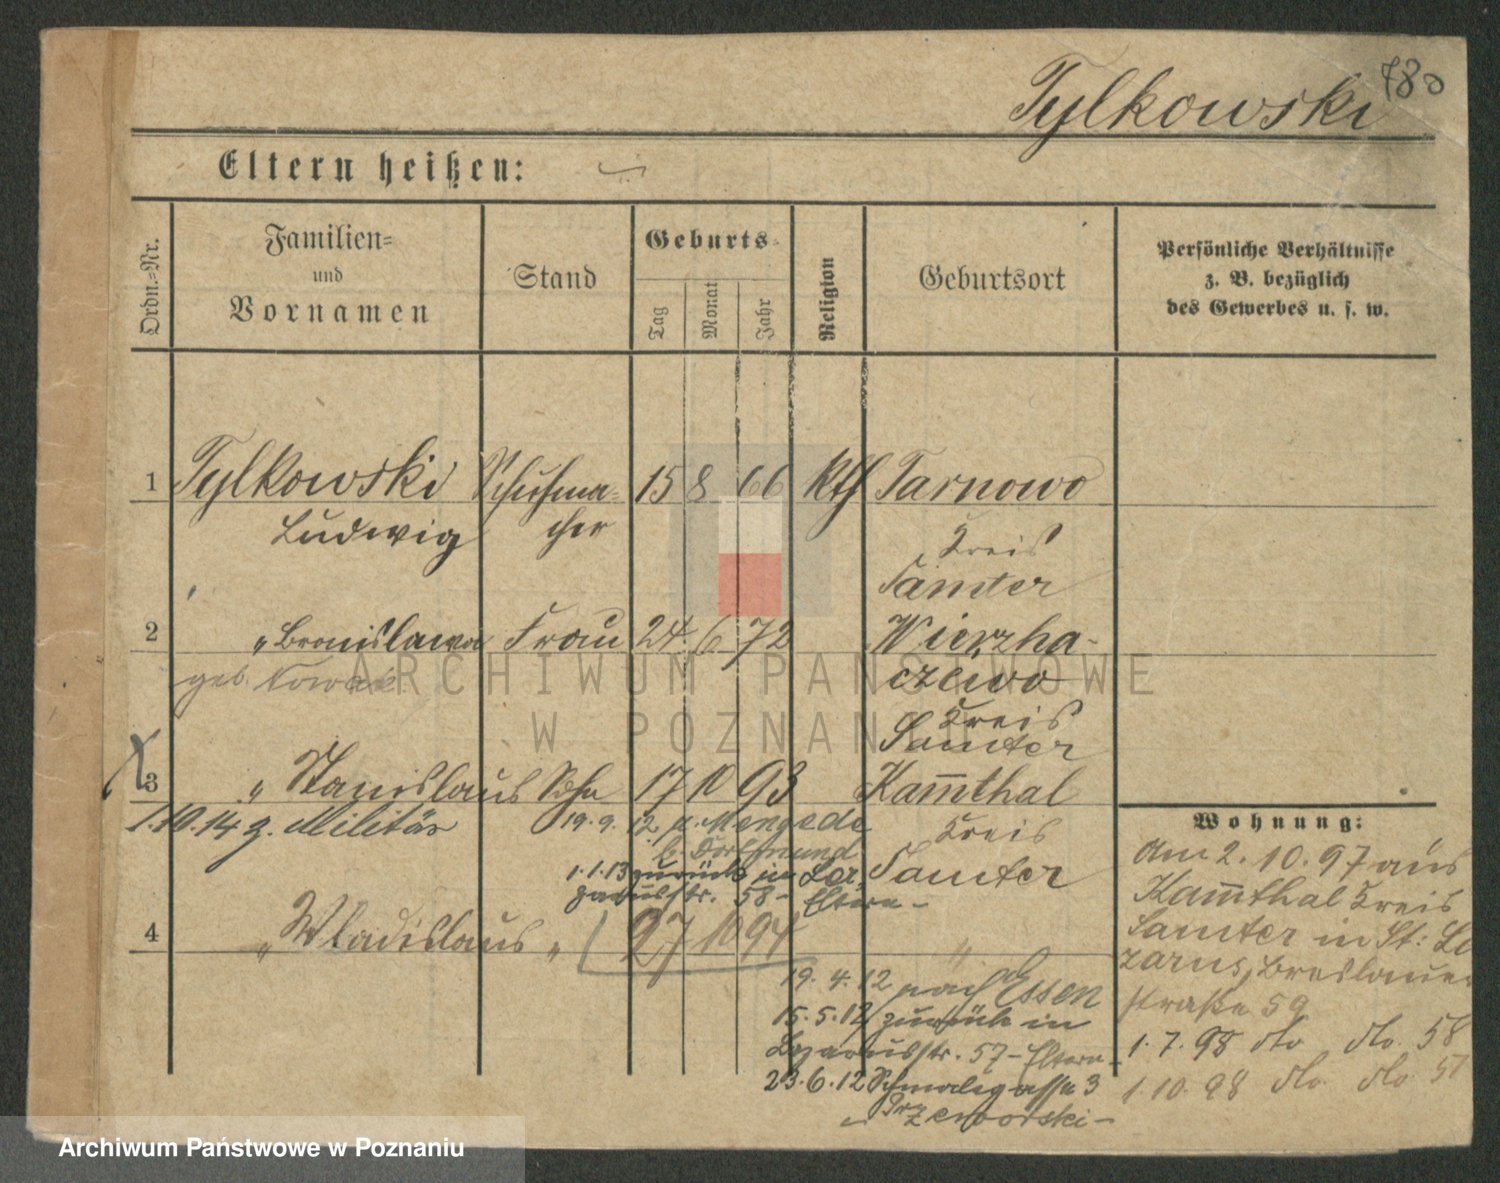 780
Tylkowski
Eltern heißen:
Ordn.-Nr.
Familien-
und
Vornamen
Stand
Geburts-
Tag
Monat
Jahr
Religion
Geburtsort
Persönliche Verhältnisse
z. B. bezüglich
des Gewerbes u. s. w.
1 Tylkowski Schuhma- 15 8 66 kth Tarnowo
Ludwig cher
Kreis
Samter
2 " Bronislawa Frau 24 6 72 Wierzcha-
geb. czewo
Kreis
Samter
3 " Stanislaus Sohn 17 10 93 Kam̅thal
1.10.14 z. Militär 19.9.12 n. Mengede Kreis
b. Dortmund Samter
1.1.13 zurück in Laz
zarusstr. 58 - Eltern -
4 " Wladislaus " 27 10 94 "
19.4.12 nach Essen
15.5.12 zurück in
Lazarusstr. 57 - Eltern -
23.6.12 Schmalegasse 3
Przeworski -
Wohnung:
Am 2.10.97 aus
Kam̅thal Kreis
Samter in St: La
zarus, Breslauer
straße 59
1.7.98 dto dto. 58
1.10.98 dto. dto 57
ARCHIWUM PAŃSTWOWE
W POZNANIU
Archiwum Państwowe w Poznaniu